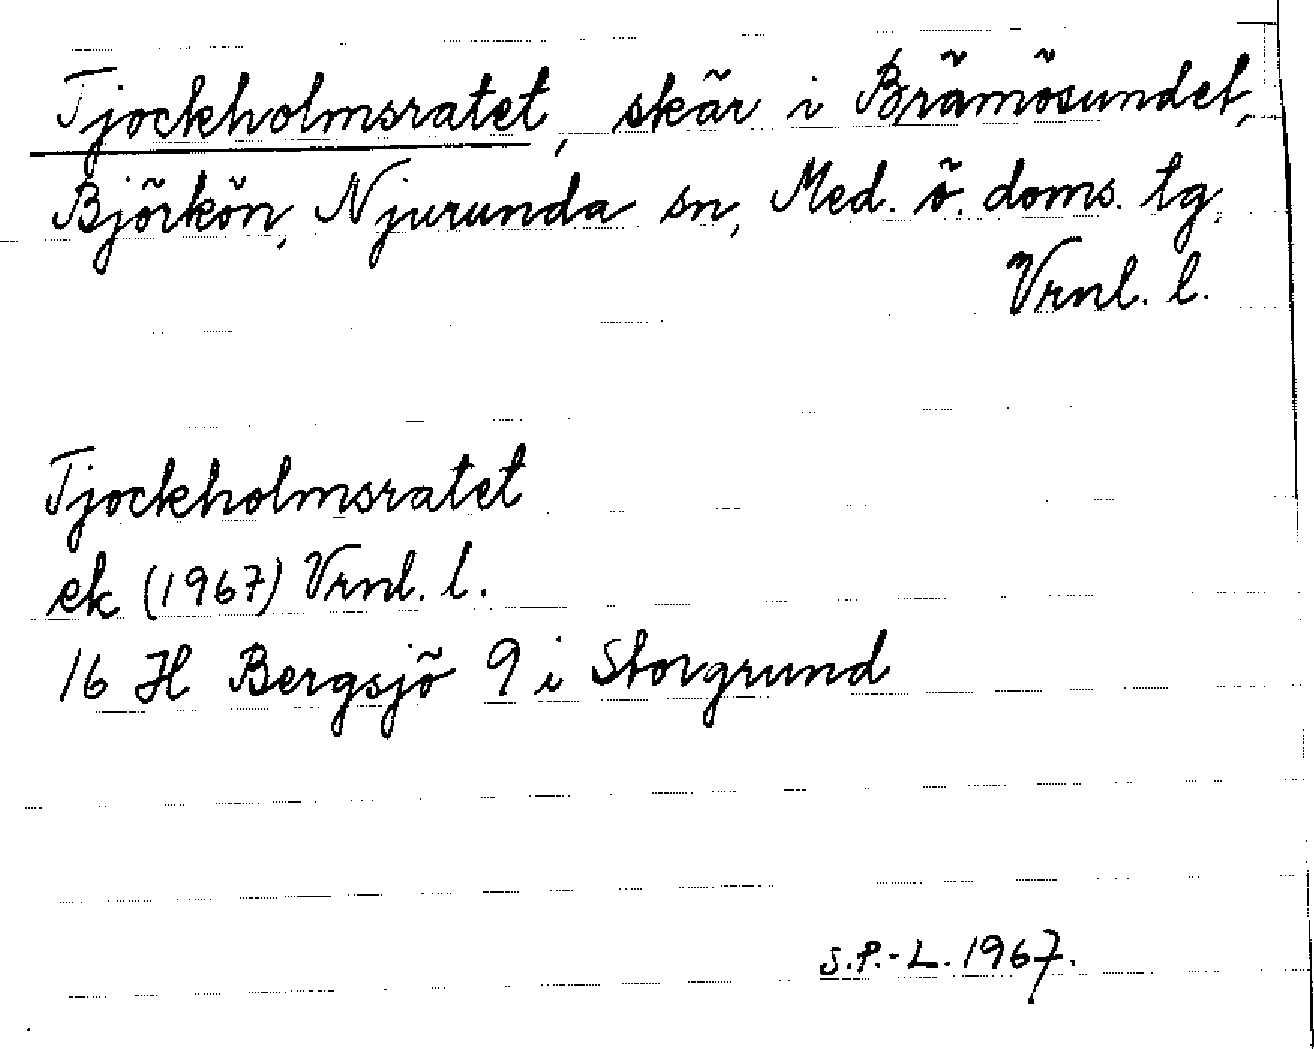 Tjockholmsratet, skär i Brämösundet,
Björkön, Njurunda sn, Med. ö. doms. tg,
Vrnl. l.
Tjockholmsratet
ek (1967) Vrnl. l.
16 H Bergsjö 9 i Storgrund
S.P.-L. 1967.